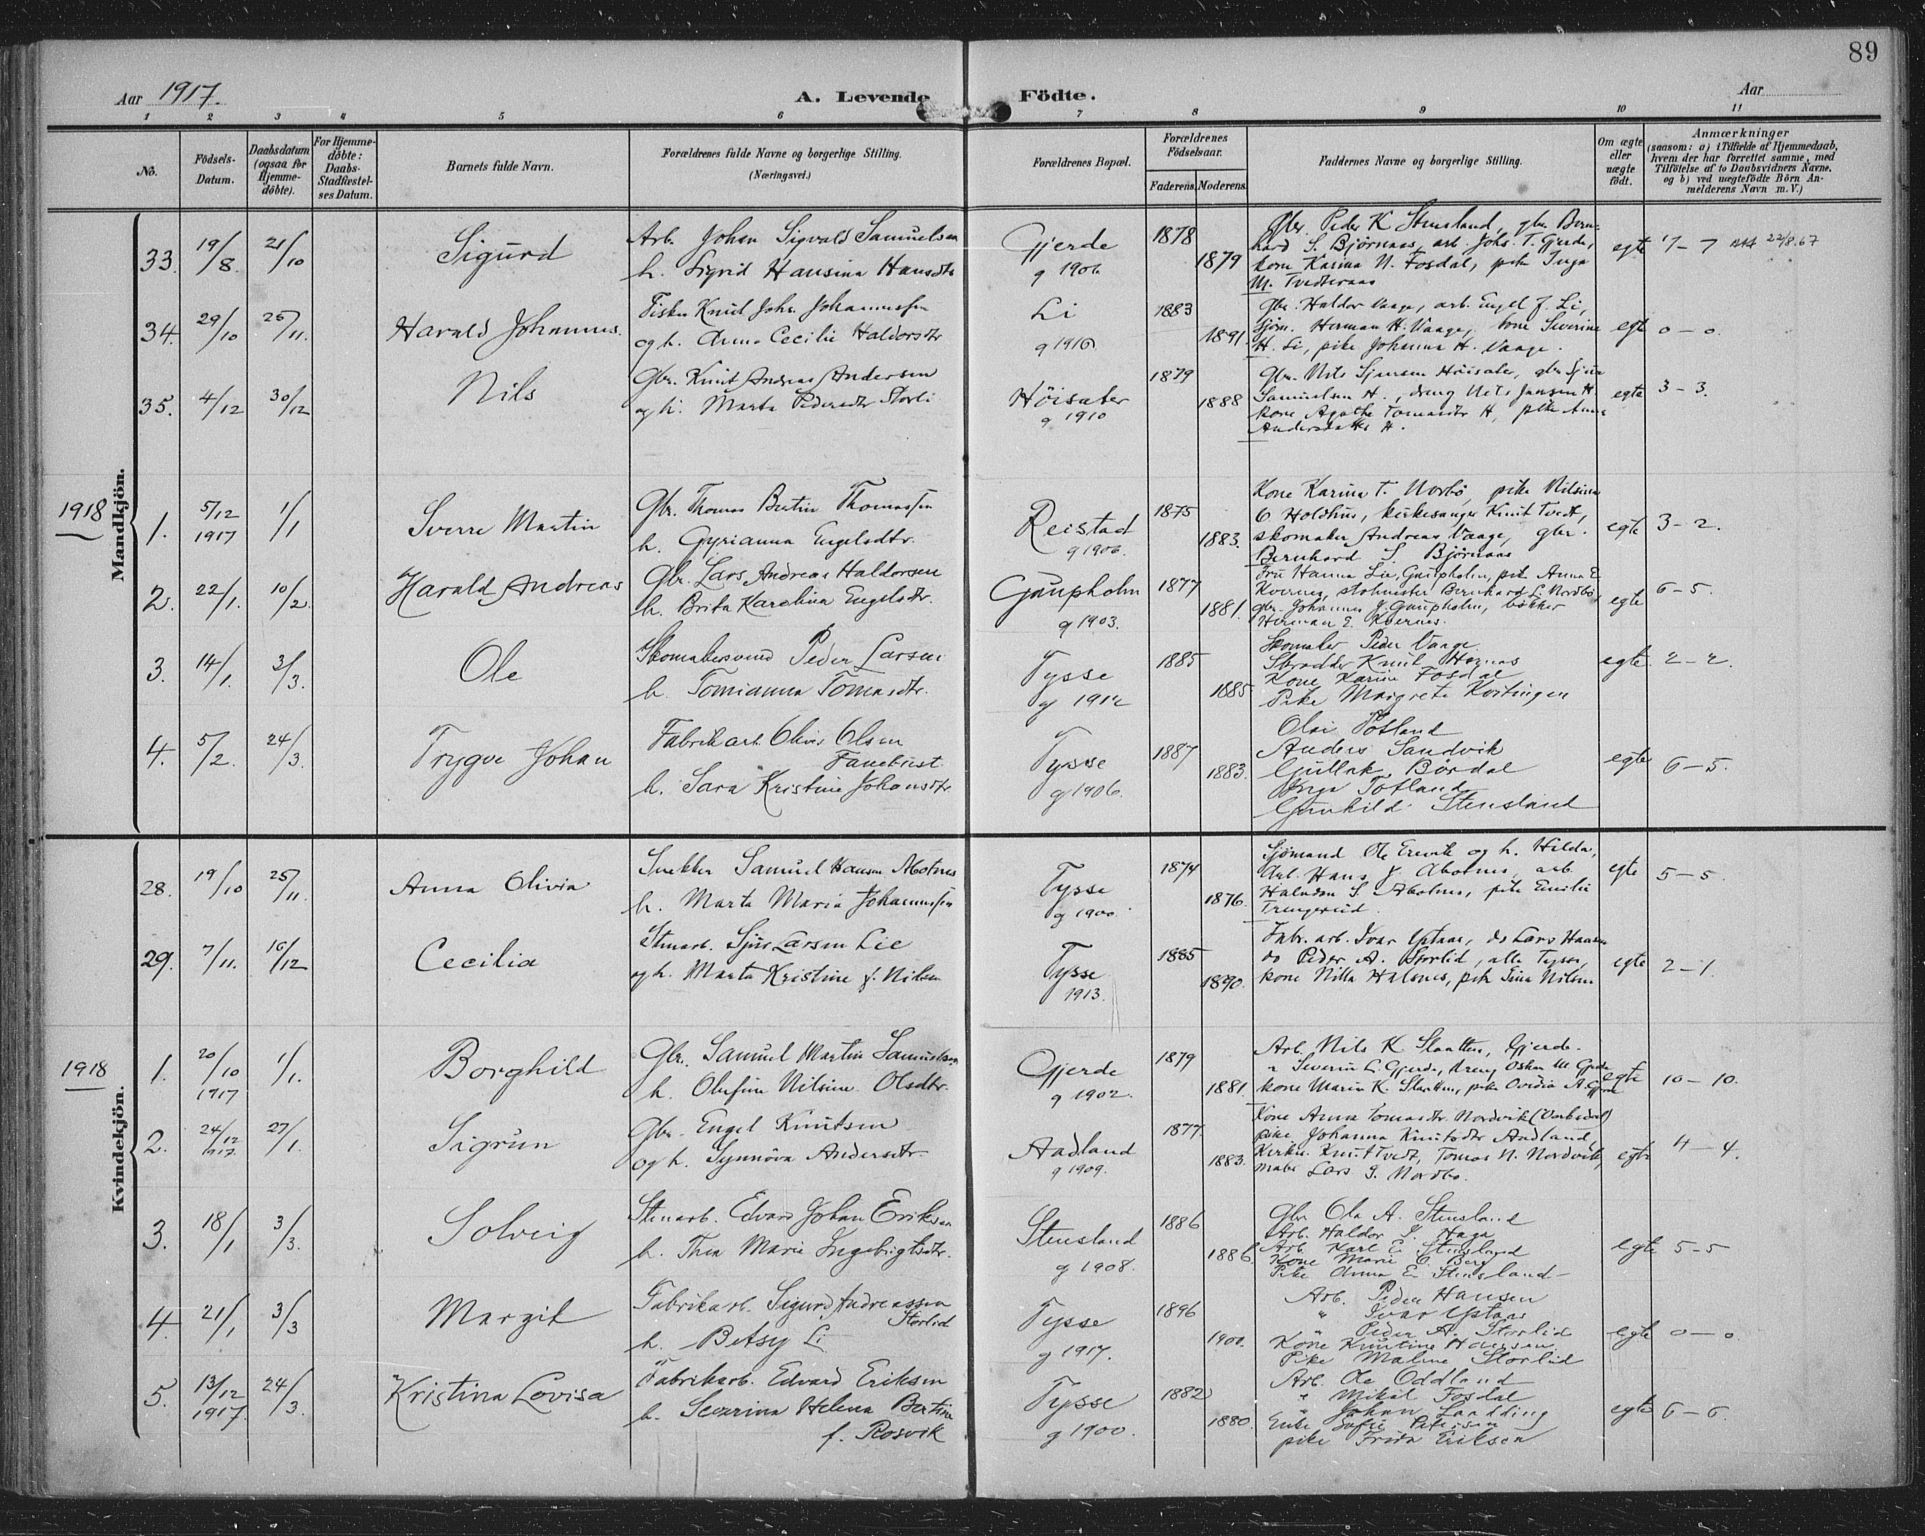 89
Aar 1917.
A. Levende Födte.
Aar
1 2 3 4 5 6 7 8 9 10 11
No.
Födsels-Datum.
Daabsdatum (ogsaa for Hjemme-döbte).
For Hjemme-döbte: Daabs-Stadfæstel-ses Datum.
Barnets fulde Navn.
Forældrenes fulde Navne og borgerlige Stilling.
(Næringsvei.)
Forældrenes Bopæl.
Forældrenes Födselsaar.
Faderens. Moderens.
Faddernes Navne og borgerlige Stilling.
Om ægte eller uægte födt.
Anmærkninger
(saasom: a) i Tilfælde af Hjemmedaab, hvem der har forrettet samme, med Tilföielse af to Daabsvidners Navne, og b) ved uægtefödte Börn An-melderens Navn m. V.)
Mandkjön.
33. 19/8 21/10 Sigurd
Arb. Johan Sigvald Samuelsen
h. Sigrid Hansina Hansdtr
Gjerde
g 1906
1878
1879
Gbr. Peder K Stensland, gbr. Bern-
hard S. Björnaas, arb. Johs. T. Gjerde,
kone Karina N. Fosdal, pike Inga
M. Tvedteraas
egte 7 – 7 22/8.67
34. 29/10 25/11. Harald Johannes.
Fisker Knut Johs. Johannessen
og h. Anna Cecilie Haldorsdtr
Li
g 1916
1883
1891.
Gbr. Haldor Vaage, arb. Engel J. Li,
Sjöm. Herman H. Vaage, kone Severine
H. Li, pike Johanna H. Vaage.
egte 0 – 0.
35. 4/12 30/12 Nils
Gbr. Knut Andreas Andersen
og h. Marta Pedersdtr Storli
Höisæter
g 1910
1879
1888
Gbr. Nils Höisæter, gbr
Samuelsen H., dreng Nils Jansen H
kone Agathe Tomasdtr H, pike Anna
Andersdatter H.
egte 3 – 3.
1918
1. 5/12 1917 1/1 Sverre Martin
Gbr. Thomas Bertin Thomassen
h. Gyrianna Engelsdtr.
Reistad
g 1906.
1875
1883.
Kone Karina T. Norbö, pike Nilsina
O Holdhus, kirkesanger Knut Tvedt,
skomaker Andreas Vaage, gbr.
Bernhard S. Björnaas
egte 3 – 2.
2. 22/1. 10/2. Harald Andreas
Gbr. Lars Andreas Haldorsen
h. Brita Karolina Engelsdtr.
Gaupholm
g 1903.
1877
1881.
Fru Hanna Lie, Gaupholm, pike Anna E
Kvernes, Bernhard L. Nordbö,
gbr. Johannes J. Gaupholm, bökker
Herman E. Kvernes.
egte 6 – 5.
3. 14/1. 3/3. Ole
Skomakersvend Peder Larsen
h. Tomianna Tomasdtr.
Tysse
g 1912
1885
1885
Skomaker Peder Vaage
Skrædder Knut
Kone Karine Fosdal
Pike Margrete Kvitingen
egte 2 – 2.
4. 5/2. 24/3. Trygve Johan
Fabrikarb. Oliver Olsen
Fanebust
h. Sara Kristine Johansdtr.
Tysse
g 1906.
1887
1883.
Olai Totland
Anders Sandvik
Gullak Bördal
Inga Totland
Gunhild Stensland
egte 6 – 5.
Kvindekjön.
28. 19/10 25/11. Anna Olivia
Snekker Samuel Hansen Abotnes
h. Marta Maria Johannessen
Tysse
g 1900.
1874
1876.
Sjömand Ole og h. Hilda,
Arb. Hans J. Abotnes, arb.
S Abotnes, pike Emilie
egte 5 – 5.
29. 7/11. 16/12 Cecilia
Stenarb. Sjur Larsen Lie
og h. Marta Kristine f. Nilsen
Tysse
1913.
1885
1890.
Fabr. arb. Ivar Ystaas, do Lars Hansen
do Peder A. Storlid, alle Tysse,
kone Nilla Halsnes, pike Sina Nilsen
egte 2 – 1.
1918
1. 20/10 1917 1/1. Borghild
Gbr. Samuel Martin Samuelsen
h. Olufine Nilsine Olsdtr.
Gjerde
g 1902.
1879
1881.
Arb. Nils K Slaatten, Gjerde.
" Severin L. Gjerde, dreng Oskar M Gjerde
kone Marie K. Slaatten, pike Ovidia A Gjerde
egte 10 – 10.
2. 24/12 1917. 27/1. Sigrun
Gbr. Engel Knutsen
og h. Synnöva Andersdtr.
Aadland
g 1909.
1877.
1883.
Kone Anna Tomasdtr. Nordvik
pike Johanna Knutsdtr Aadland,
Kirkes. Knut Tvedt, Tomas N. Nordvik,
Lars G. Nordbö.
egte 4 – 4.
3. 18/1 3/3. Solveig
Stenarb. Edvard Johan Eriksen
h. Thea Marie Ingebrigtsdtr.
Stensland
g 1908.
1886
1886
Gbr Ole A. Stensland
Arb. Haldor S. Haga
Arb. Karl E. Stensland
Kone Marie C. Berg
Pike Anna E. Stensland
egte 5 – 5
4. 21/1 3/3 Margit
Fabrikarb. Sigurd Andreassen
Storlid
h. Betsy Li
Tysse
g 1917.
1896
1900.
Arb. Peder Hansen
" Ivar Ystaas
" Peder A. Storlid
Kone Kristine Hansen
Pike Malene Storlid
egte 0 – 0
5. 13/12 1917. 24/3. Kristina Lovisa
Fabrikarb. Edvard Eriksen
h. Severina Helena Bertine
f. Rosvik
Tysse
g 1900.
1882
1880.
Arb. Ole Oddland
" Mikal Fosdal
" Johan Landding
Enke Sofie Petersen
pike Frida Eriksen
egte 6 – 6